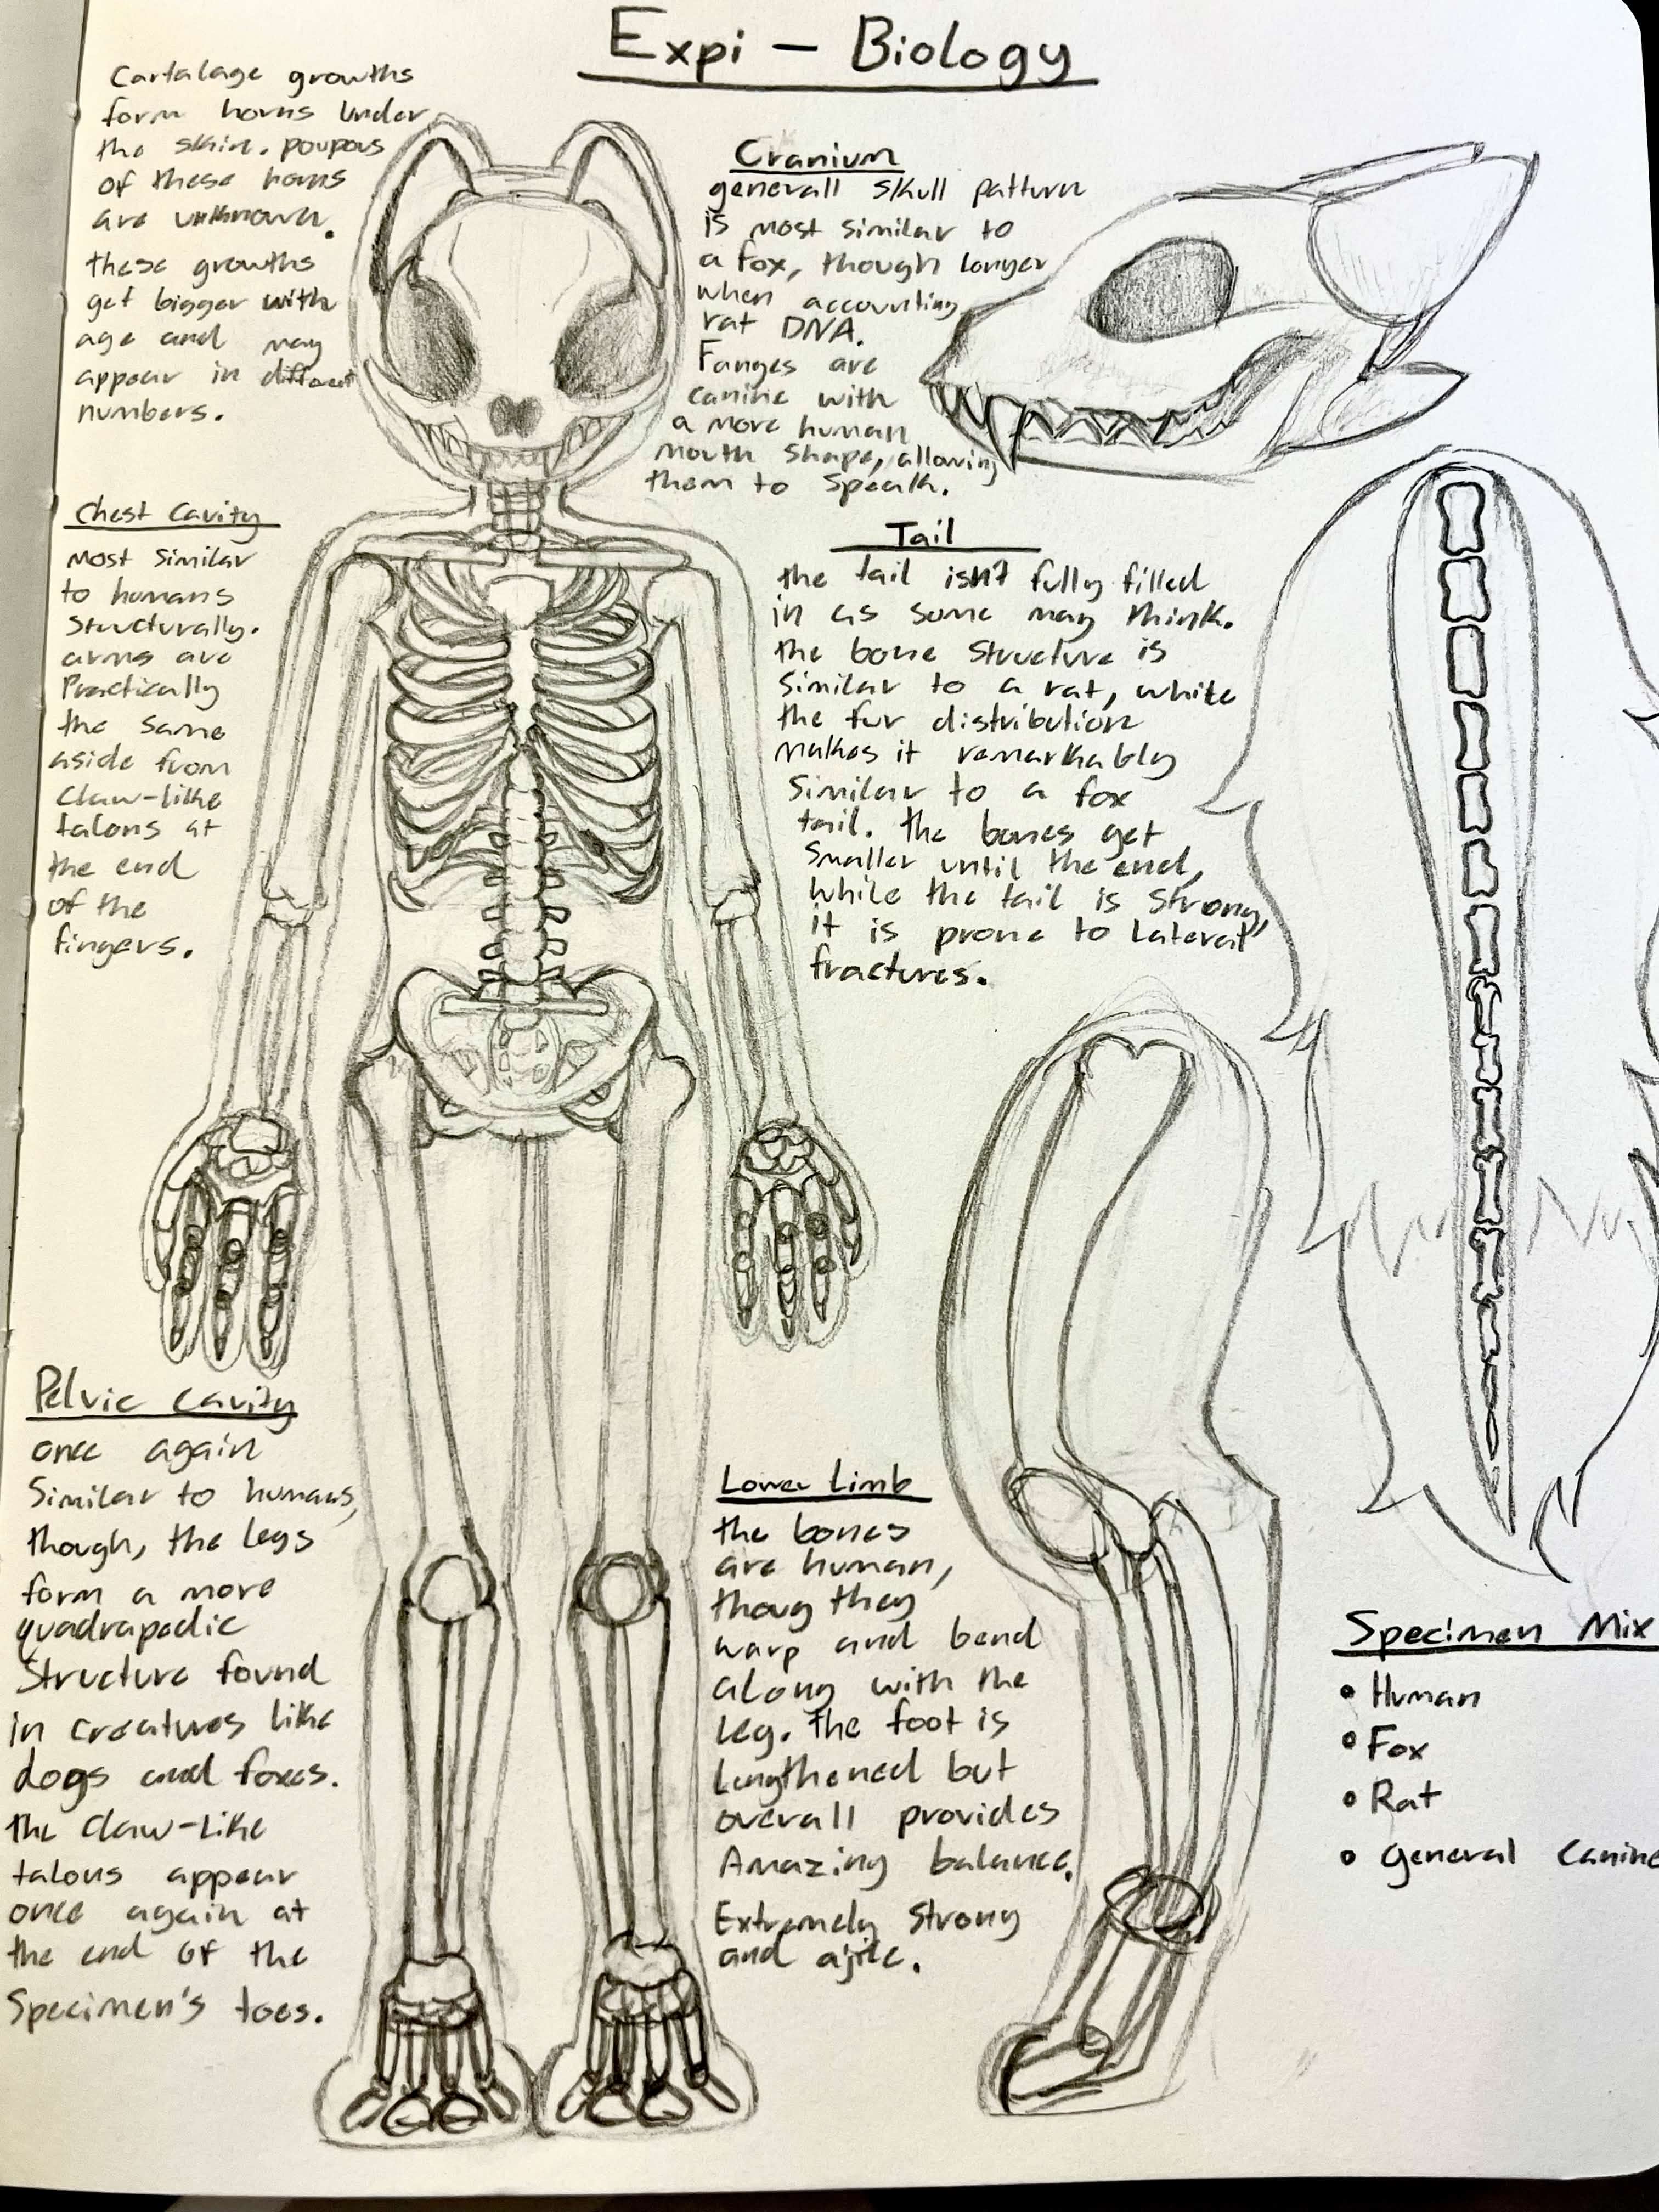 Expi - Biology
Cartalage growths
form horns under
the skin. poupous
of these horns
are unknown.
these growths
get bigger with
age and may
appear in different
numbers.
Cranium
generall skull patturn
is most similar to
a fox, though longer
when accounting
rat DNA.
Fanges are
canine with
a more human
mouth shape, allowing
them to speak.
Chest Cavity
most similar
to humans
structurally.
arms are
Practically
the same
aside from
claw-like
talons at
the end
of the
fingers.
Tail
the tail isn't fully filled
in as some may think.
the bone structure is
similar to a rat, while
the fur distribution
makes it remarkably
similar to a fox
tail. the bones get
smaller until the end,
while the tail is strong,
it is prone to lateral
fractures.
Pelvic Cavity
once again
similar to humans,
though, the legs
form a more
quadrapedic
structure found
in creatures like
dogs and foxes.
the claw-like
talons appear
once again at
the end of the
Specimen's toes.
Lower limb
the bones
are human,
thoug they
warp and bend
along with the
leg. The foot is
lengthened but
overall provides
Amazing balance.
Extremely strong
and ajile.
Specimen Mix
• Human
• Fox
• Rat
• general Canine